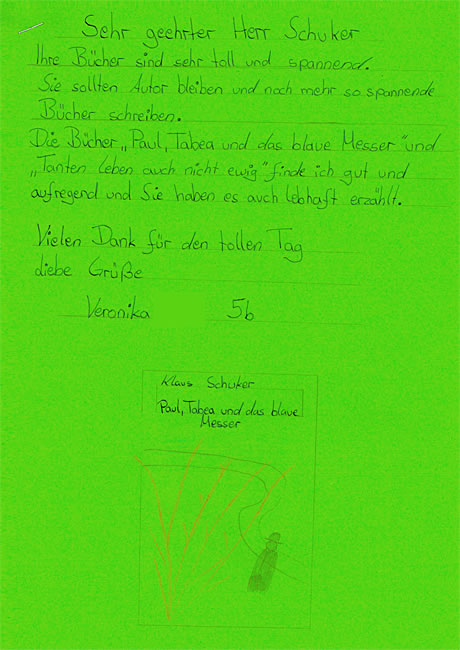 Sehr geehrter Herr Schuker
Ihre Bücher sind sehr toll und spannend.
Sie sollten Autor bleiben und noch mehr so spannende
Bücher schreiben.
Die Bücher „Paul, Tabea und das blaue Messer" und
„Tanten leben auch nicht ewig" finde ich gut und
aufregend und Sie haben es auch lebhaft erzählt.
Vielen Dank für den tollen Tag
Liebe Grüße
Veronika 5b
Klaus Schuker
Paul, Tabea und das blaue
Messer